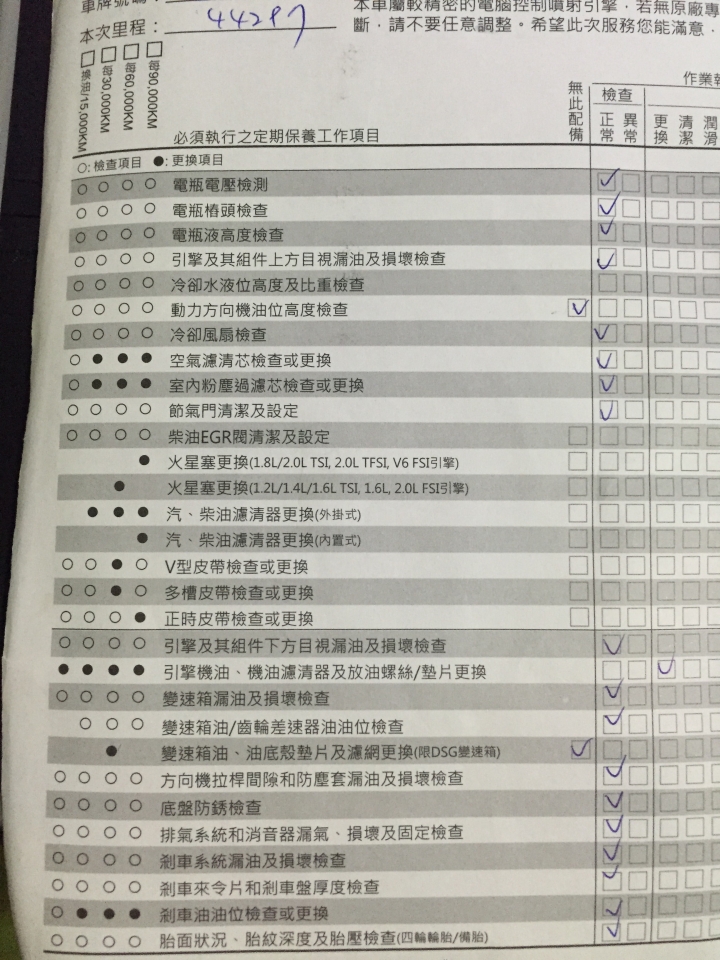 車牌號碼：
本次里程： 44287
本車屬較精密的電腦控制噴射引擎，若無原廠專
斷，請不要任意調整。希望此次服務您能滿意，
換油/15,000KM
每30,000KM
每60,000KM
每90,000KM
必須執行之定期保養工作項目
無此配備
作業
檢查
正常
異常
更換
清潔
潤滑
○: 檢查項目 ●: 更換項目
○ ○ ○ ○ 電瓶電壓檢測
○ ○ ○ ○ 電瓶樁頭檢查
○ ○ ○ ○ 電瓶液高度檢查
○ ○ ○ ○ 引擎及其組件上方目視漏油及損壞檢查
○ ○ ○ ○ 冷卻水液位高度及比重檢查
○ ○ ○ ○ 動力方向機油位高度檢查
○ ○ ○ ○ 冷卻風扇檢查
○ ● ● ● 空氣濾清芯檢查或更換
○ ● ● ● 室內粉塵過濾芯檢查或更換
○ ○ ○ ○ 節氣門清潔及設定
○ ○ ○ ○ 柴油EGR閥清潔及設定
● 火星塞更換(1.8L/2.0L TSI, 2.0L TFSI, V6 FSI引擎)
● 火星塞更換(1.2L/1.4L/1.6L TSI, 1.6L, 2.0L FSI引擎)
● ● ● 汽、柴油濾清器更換(外掛式)
● 汽、柴油濾清器更換(內置式)
○ ○ ● ○ V型皮帶檢查或更換
○ ○ ● ○ 多槽皮帶檢查或更換
○ ○ ○ ● 正時皮帶檢查或更換
○ ○ ○ ○ 引擎及其組件下方目視漏油及損壞檢查
● ● ● ● 引擎機油、機油濾清器及放油螺絲/墊片更換
○ ○ ○ ○ 變速箱漏油及損壞檢查
○ ○ ○ 變速箱油/齒輪差速器油油位檢查
● 變速箱油、油底殼墊片及濾網更換(限DSG變速箱)
○ ○ ○ ○ 方向機拉桿間隙和防塵套漏油及損壞檢查
○ ○ ○ ○ 底盤防銹檢查
○ ○ ○ ○ 排氣系統和消音器漏氣、損壞及固定檢查
○ ○ ○ ○ 剎車系統漏油及損壞檢查
○ ○ ○ ○ 剎車來令片和剎車盤厚度檢查
○ ● ● ● 剎車油油位檢查或更換
○ ○ ○ ○ 胎面狀況、胎紋深度及胎壓檢查(四輪輪胎/備胎)